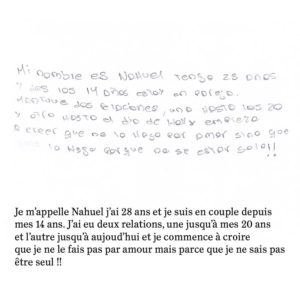 Mi nombre es Nahuel tengo 28 años
y des los 14 años estoy en pareja.
Mantuve dos relaciones, una hasta los 20
y otra hasta el dia de hoy y empiezo
a creer que no lo hago por amor sino que
lo hago porque no se estar solo!!
Je m'appelle Nahuel j'ai 28 ans et je suis en couple depuis
mes 14 ans. J'ai eu deux relations, une jusqu'à mes 20 ans
et l'autre jusqu'à aujourd'hui et je commence à croire
que je ne le fais pas par amour mais parce que je ne sais pas
être seul !!